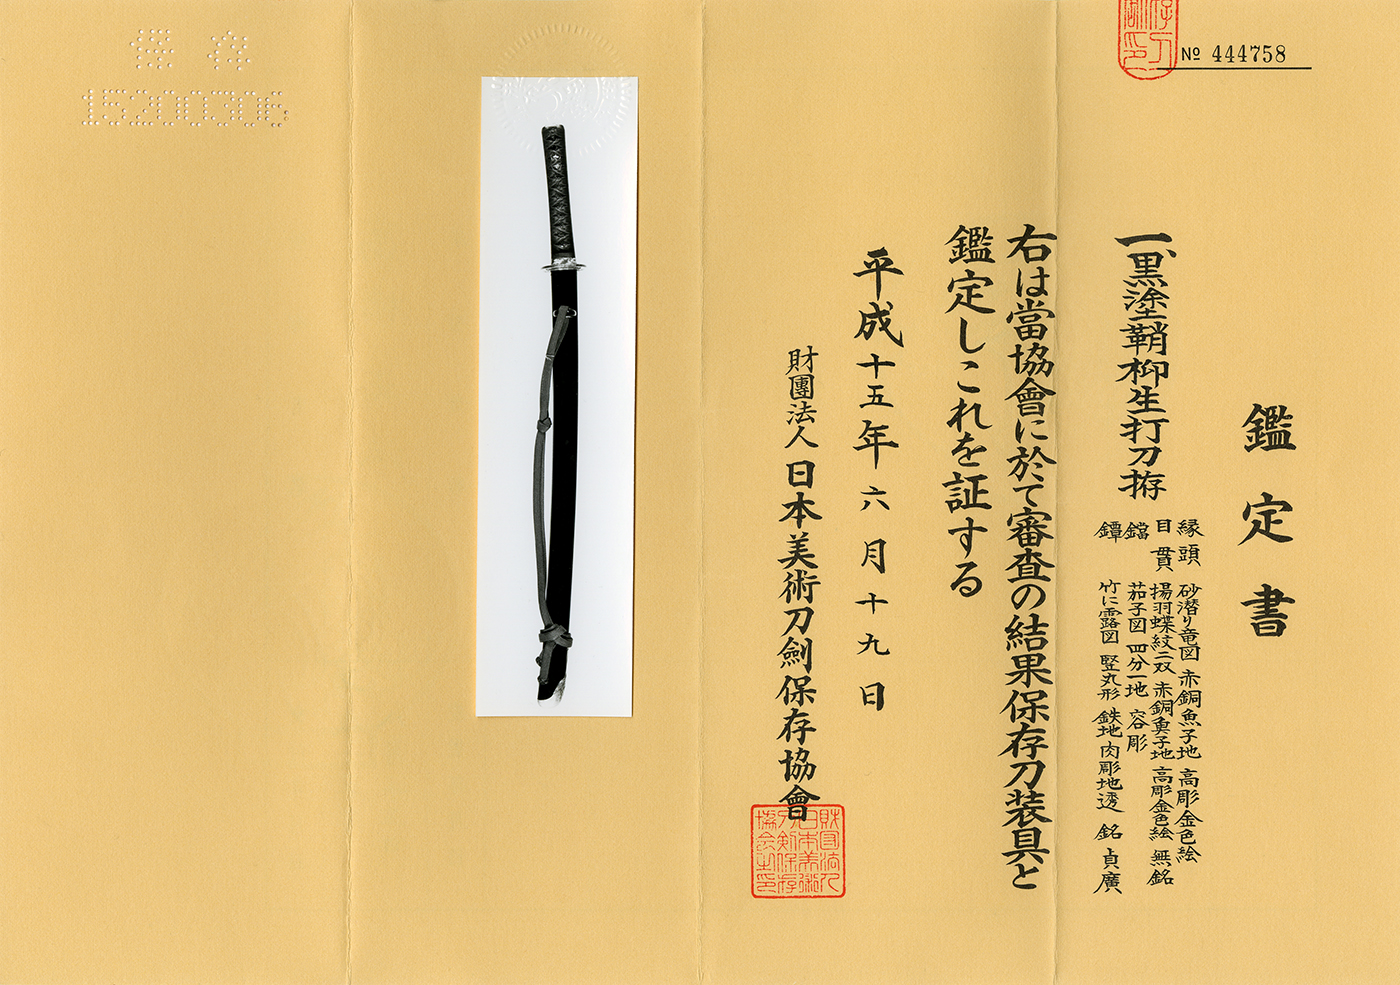 № 444758
鑑定書
一、黒塗鞘柳生打刀拵
縁頭 砂潜り竜図 赤銅魚子地 高彫金色絵
目貫 揚羽蝶紋二双 赤銅魚子地 高彫金色絵 無銘
鐺 茄子図 四分一地 容彫
鐔 竹に露図 竪丸形 鉄地 肉彫地透 銘 貞廣
右は當協會に於て審査の結果保存刀装具と
鑑定しこれを証する
平成十五年六月十九日
財團法人日本美術刀劍保存協會
財団法人日本美術刀剣保存協会之印
保存
15200306